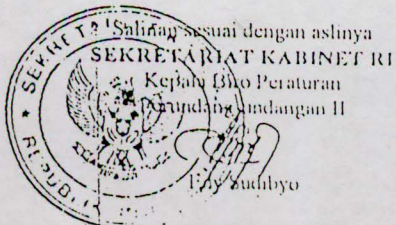 Salinan sesuai dengan aslinya
SEKRETARIAT KABINET RI
Kepala Biro Peraturan
Perundang-undangan II
Sudibyo
SEKRETA
REPUBLI